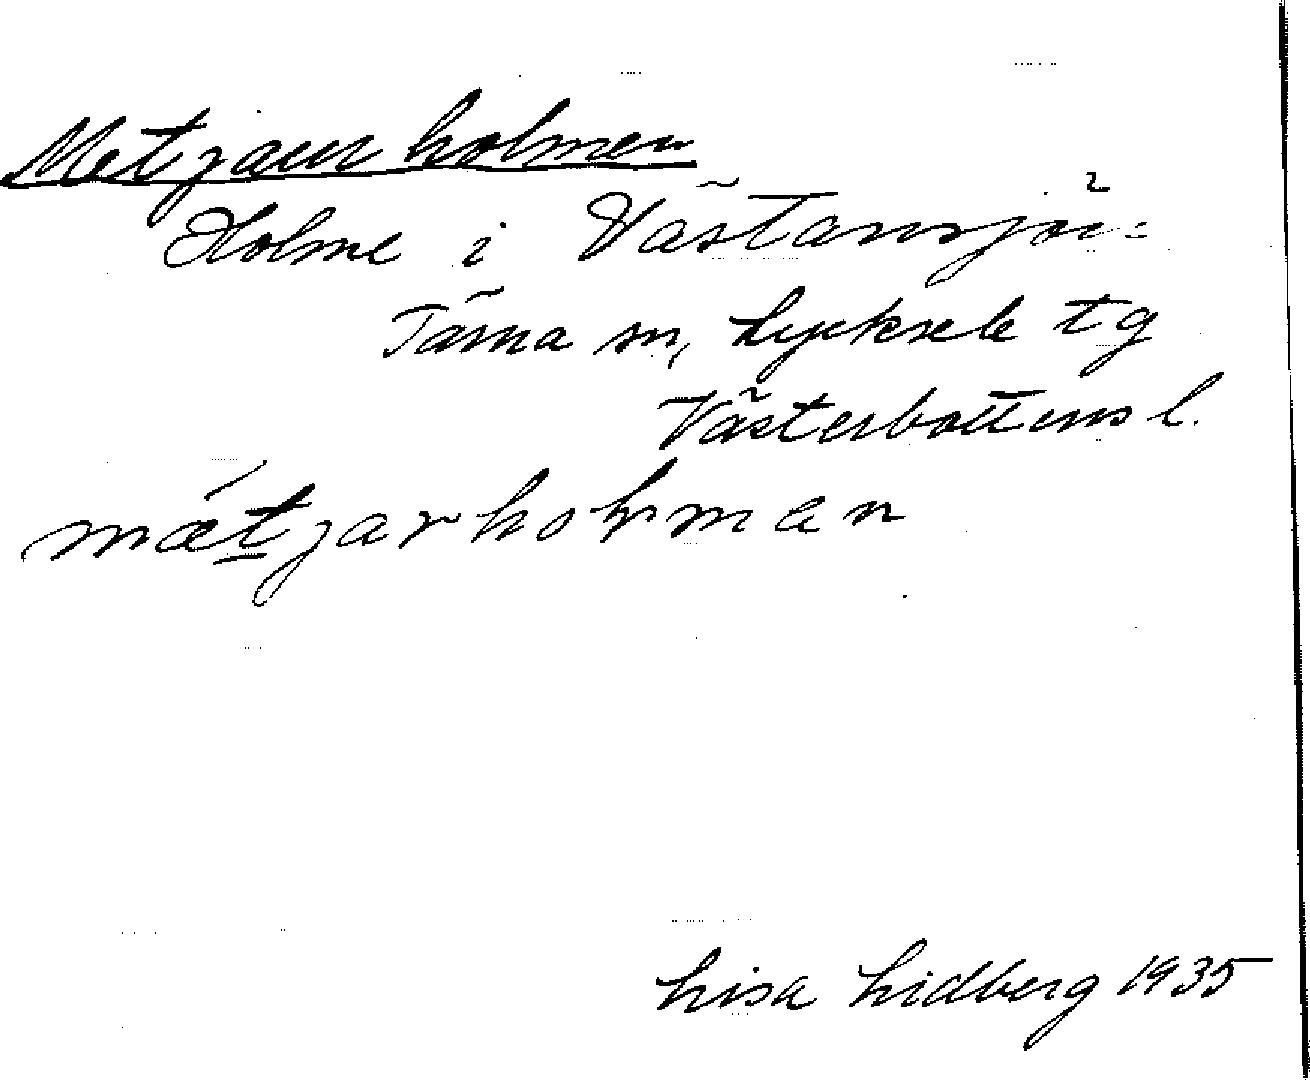 Metjaurholmen
Holme i Västansjö:
Tärna sn, Lycksele tg
Västerbottens l.
mætjarhoḷman
Lisa Lidberg 1935